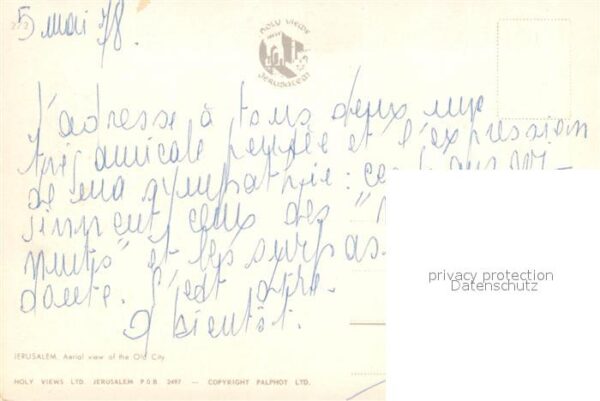 5 mai 78.
HOLY VIEWS
JERUSALEM
J'adresse à tous deux une
très amicale pensée et l'expression
de ma sympathie : ces
sinnent ceux des "
nuits" et les surpas
doute. C'est dire.
A bientôt.
privacy protection
Datenschutz
JERUSALEM. Aerial view of the Old City
HOLY VIEWS LTD. JERUSALEM P O B 2497 — COPYRIGHT PALPHOT LTD.